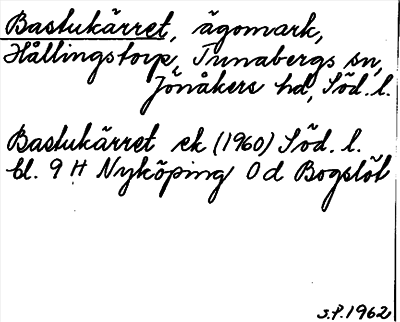 Bastukärret, ägomark,
Hållingstorp, Tunabergs sn,
Jönåkers hd, Söd. l.
Bastukärret ek (1960) Söd. l.
bl. 9 H Nyköping 0 d Bogslöt
S.P. 1962